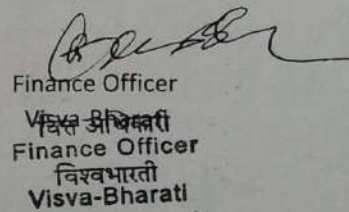 Finance Officer
Visva-Bharati
वित्त अधिकारी
Finance Officer
विश्वभारती
Visva-Bharati